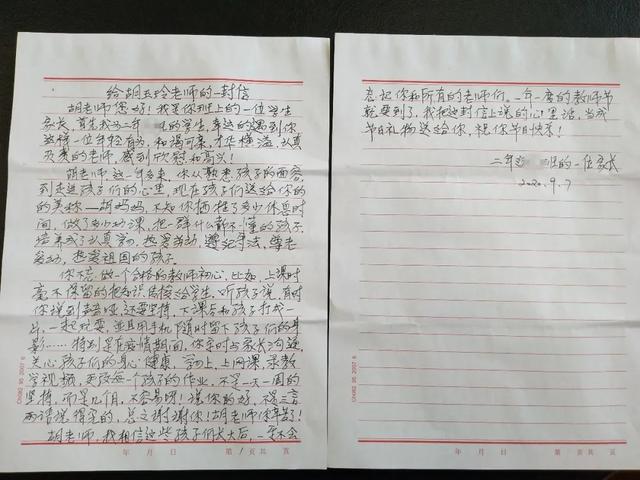 给胡玉玲老师的一封信
胡老师您好！我是你班上的一位学生
家长，首先我为二年 的学生，幸运的遇到你
这样一位年轻有为，和蔼可亲，才华横溢，认真
负责的老师，感到欣慰和高兴！
胡老师，这一年多来，你从熟悉孩子的面容，
到走进孩子们的心里，现在孩子们送给你的
的美称—胡妈妈，不知你牺牲了多少休息时
间，做了多少功课，把一群什么都不懂的孩子，
培养成了认真学习，热爱劳动，遵纪守法，尊老
爱幼，热爱祖国的孩子。
你不忘做一个合格的教师初心，比如，上课时
毫不保留的把知识传授给学生，听孩子说，有时
你说到声音哑，还要坚持，下课后和孩子打成一
片，一起玩耍，并且用手机随时留下孩子们的身
影……特别是在疫情期间，你实时与家长沟通，
关心孩子们的身心健康，学习上，上网课，录教
学视频，更改每一个孩子的作业，不是一天一周的
坚持，而是几个月，不容易呀！说你的好，不是三言
两语说得完的，总之谢谢你！胡老师你辛苦了！
胡老师，我相信这些孩子们长大后，一定不会
年 月 日 第 1 页共 页
忘记你和所有的老师们。一年一度的教师节
就要到了，我把这封信上说的心里话，当成
节日礼物送给你，祝你节日快乐！
二年 班的一位家长
2020.9.7
年 月 日 第 页共 页